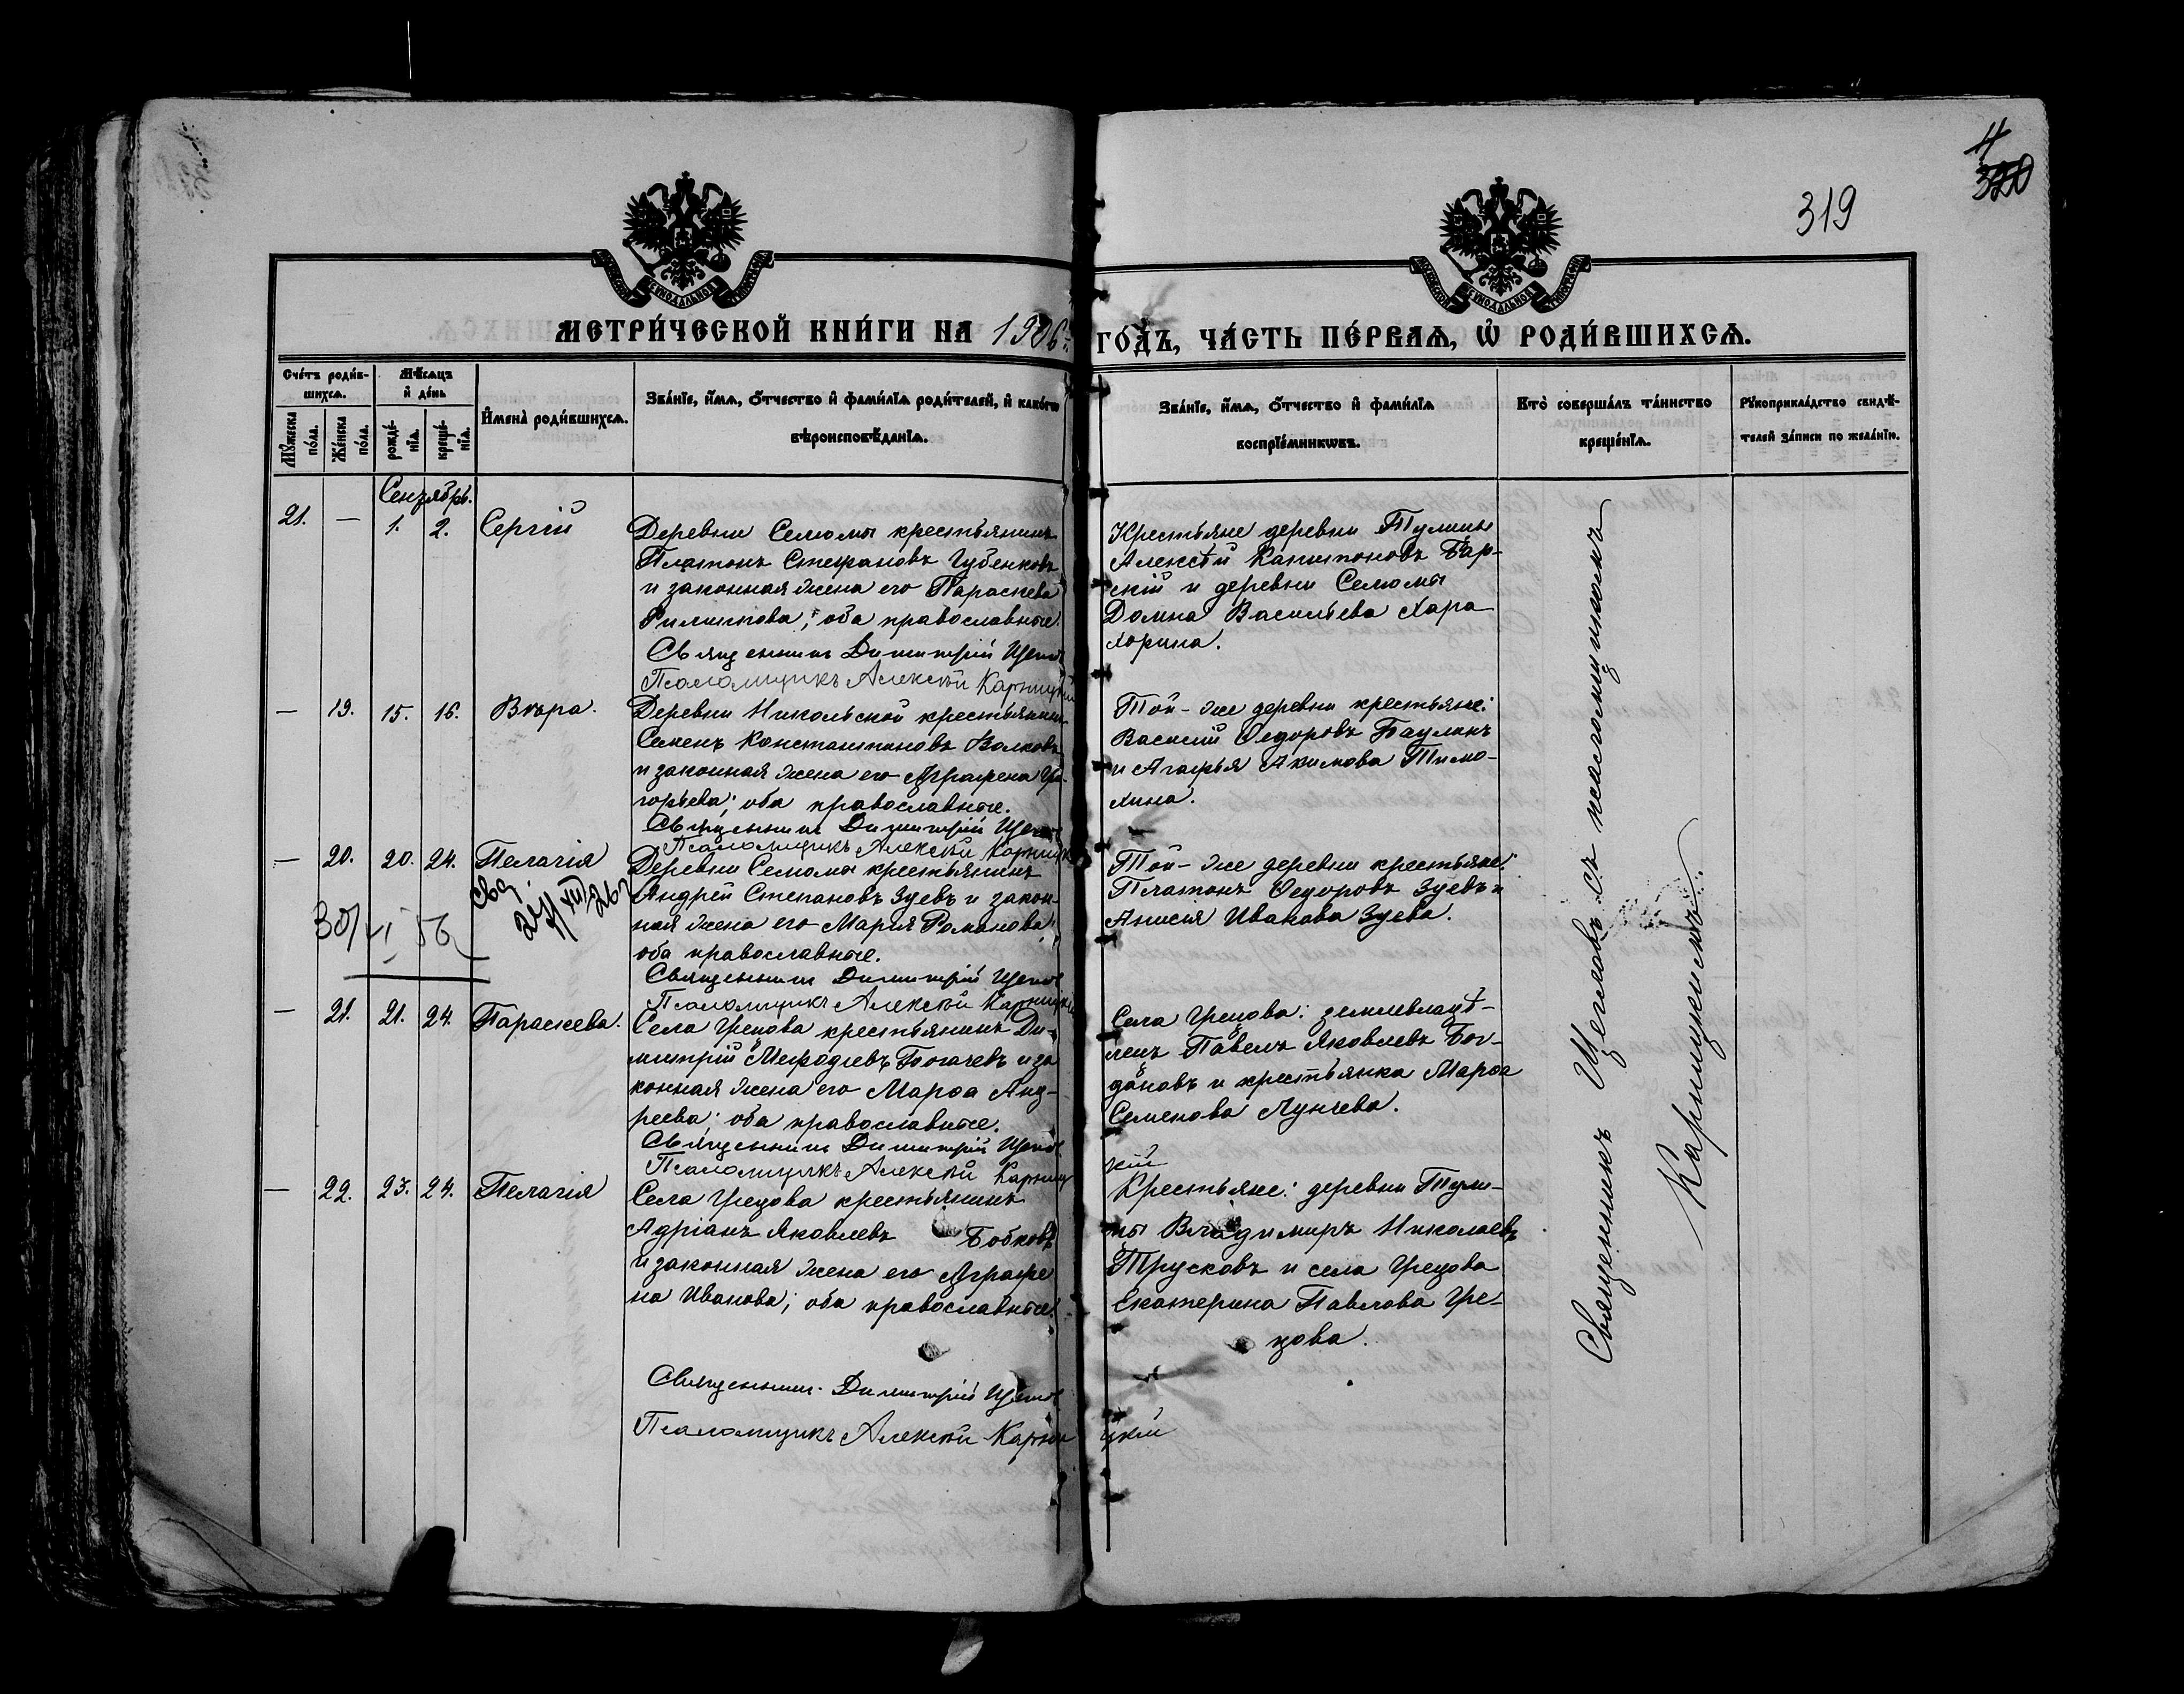 319
320
МЕТРИ́ЧЕСКОЙ КНИ́ГИ НА 1906 г. ГО́ДЪ, ЧА́СТЬ ПЕ́РВАѦ, Ѡ҆ РОДИ́ВШИХСѦ.
Сче́тъ роди́в-
шихсѧ.
Мѣ́сѧцъ
и҆ де́нь
Мꙋ́жеска
по́ла.
Же́нска
по́ла.
рожде́-
нїѧ.
креще́-
нїѧ.
И҆мена̀ роди́вшихсѧ.
Зва́нїе, и҆́мѧ, ѻ҆́тчество и҆ фами́лїѧ роди́телей, и҆ како́гѡ
вѣроисповѣ́данїѧ.
Зва́нїе, и҆́мѧ, ѻ҆́тчество и҆ фами́лїѧ
воспрїе́мникѡвъ.
Кто̀ соверша́лъ та́инство
креще́нїѧ.
Рꙋкоприкла́дство свидѣ́-
телей за́писи по жела́нїю.
Сентябрь.
21. — 1. 2. Сергій
Деревни Селомы крестьянинъ
Платонъ Стефановъ Губенковъ
и законная жена его Параскева
Филиппова; оба православные.
Священникъ Димитрій Щегловъ
Псаломщикъ Алексѣй Карницкій
Крестьяне деревни Тулицы
Алексѣй Капитоновъ Бар-
скій и деревни Селомы
Домна Васильева Хара-
хорина.
— 19. 15. 16. Вѣра.
Деревни Никольской крестьянинъ
Семенъ Константиновъ Волковъ
и законная жена его Аграфена Гри-
горьева; оба православные.
Священникъ Димитрій Щегловъ
Псаломщикъ Алексѣй Карницкій
Той-же деревни крестьяне:
Василій Ѳедоровъ Баулинъ
и Агафья Акимова Тимо-
хина.
— 20. 20. 24. Пелагія
Деревни Селомы крестьянинъ
Андрей Степановъ Зуевъ и закон-
ная жена его Марія Романова;
оба православные.
Священникъ Димитрій Щегловъ
Псаломщикъ Алексѣй Карницкій
Той-же деревни крестьяне:
Платонъ Ѳедоровъ Зуевъ и
Анисія Иванова Зуева.
— 21. 21. 24. Параскева.
Села Грецова крестьянинъ Ди-
митрій Меѳодіевъ Богачевъ и за-
конная жена его Марѳа Анд-
реева; оба православные.
Священникъ Димитрій Щегловъ
Псаломщикъ Алексѣй Карниц
кій
Села Грецова: землевладѣ-
лецъ Павелъ Яковлевъ Бог-
дановъ и крестьянка Марѳа
Семенова Лунева.
— 22. 23. 24. Пелагія
Села Грецова крестьянинъ
Адріанъ Яковлевъ Бобковъ
и законная жена его Аграфе
на Иванова; оба православные.
Священникъ Димитрій Щегловъ
Псаломщикъ Алексѣй Карни цкій
Крестьяне: деревни Тули-
цы Владимиръ Николаевъ
Трусковъ и села Грецова
Екатерина Павлова Гре-
цова.
Священникъ Щегловъ съ псаломщикомъ
Карницкимъ.